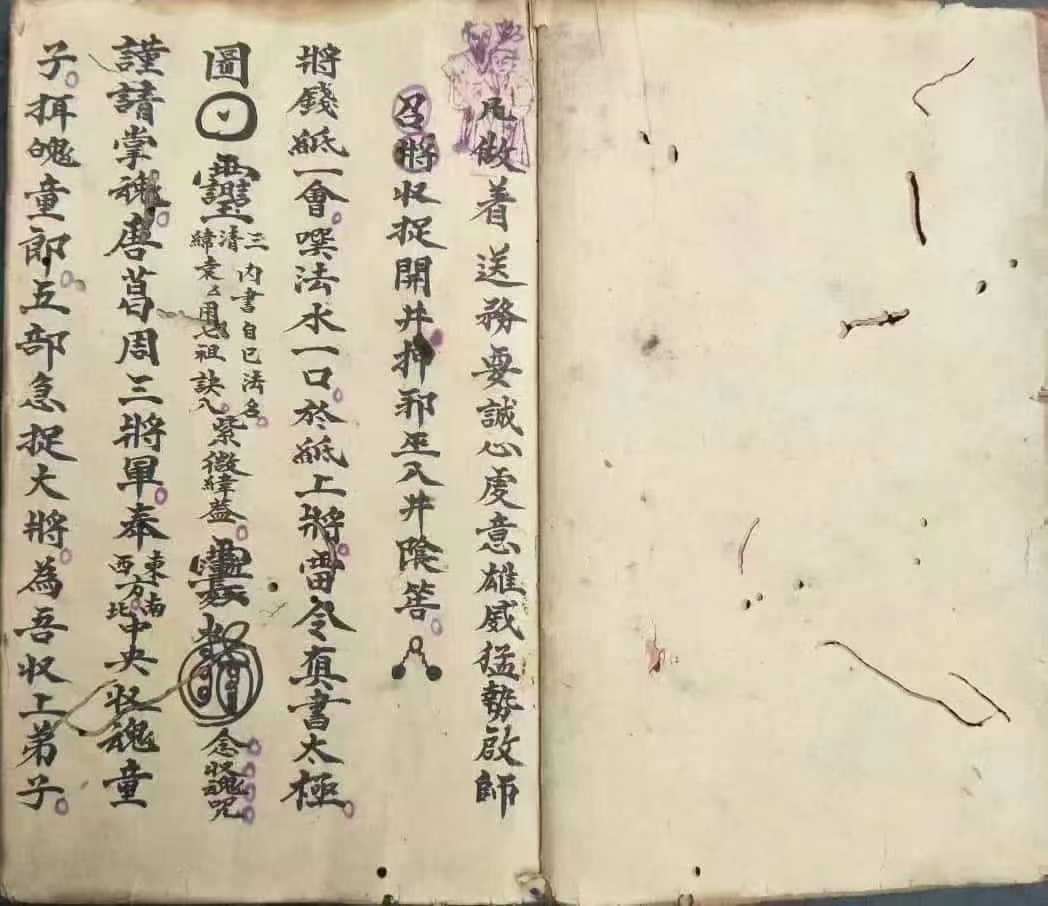 凡做着送務要誠心虔意雄威猛勢啟師
召將收捉開井押邪巫入井陰筶
將錢紙一會噀法水一口於紙上將雷令真書太極
圖 三清 內書自已法名 緯 用七祖訣八 紫微緯蓋 念收魂咒
謹請掌魂唐葛周三將軍奉東南西北方中央收魂童
子 魄童郎五部急捉大將為吾收上弟子